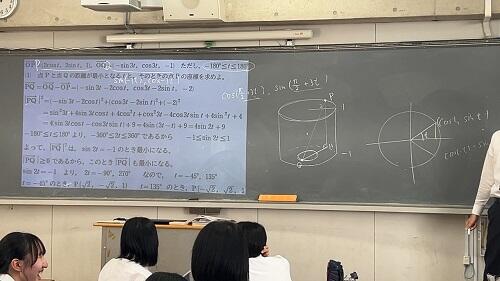 OP=(2cos t, 2sin t, 1), OQ=(-sin3t, cos3t, -1) ただし，-180°≦t≦180°
(1) 点Pと点Qの距離が最小となるtと，そのときの点Pの座標を求めよ。
PQ=OQ-OP=(-sin3t-2cos t, cos3t-2sin t, -2)
|PQ|²=(-sin3t-2cos t)²+(cos3t-2sin t)²+(-2)²
=sin²3t+4sin3t cos t+4cos²t+cos²3t-4cos3t sin t+4sin²t+4
=4sin3t cos t-4cos3t sin t+9=4sin(3t-t)+9=4sin2t+9
-180°≦t≦180°より，-360°≦2t≦360°であるから -1≦sin2t≦1
よって，|PQ|²は，sin2t=-1のとき最小になる。
|PQ|≧0であるから，このとき|PQ|も最小になる。
sin2t=-1 より，2t=-90°, 270° なので，t=-45°, 135°
t=-45°のとき，P(√2, -√2, 1) t=135°のとき，P(-√2, √2, 1
cos(π/2+3t), sin(π/2+3t)
P
1
-1
Q
(cos t, sin t)